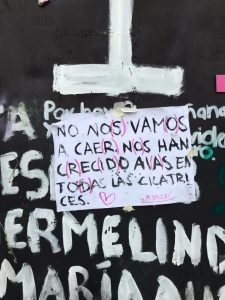 Por hoy
ñana
A
NO NOS VAMOS
A CAER, NOS HAN
CRECIDO ALAS EN
TODAS LAS CICATRI
CES.
vida
ES
ERMELIND
MARÍA